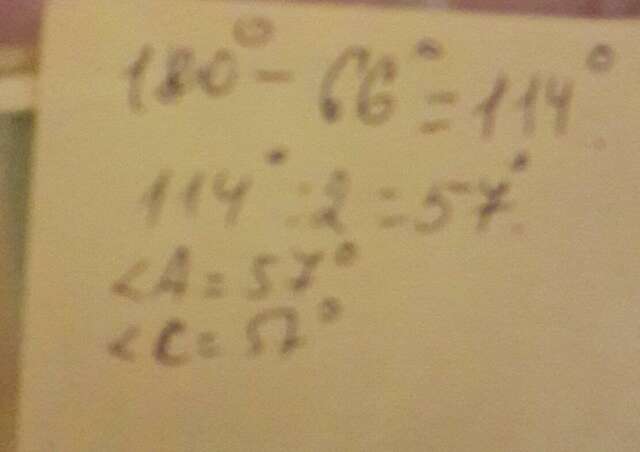 180° - 66° = 114°
114° : 2 = 57°
<A = 57°
<C = 57°